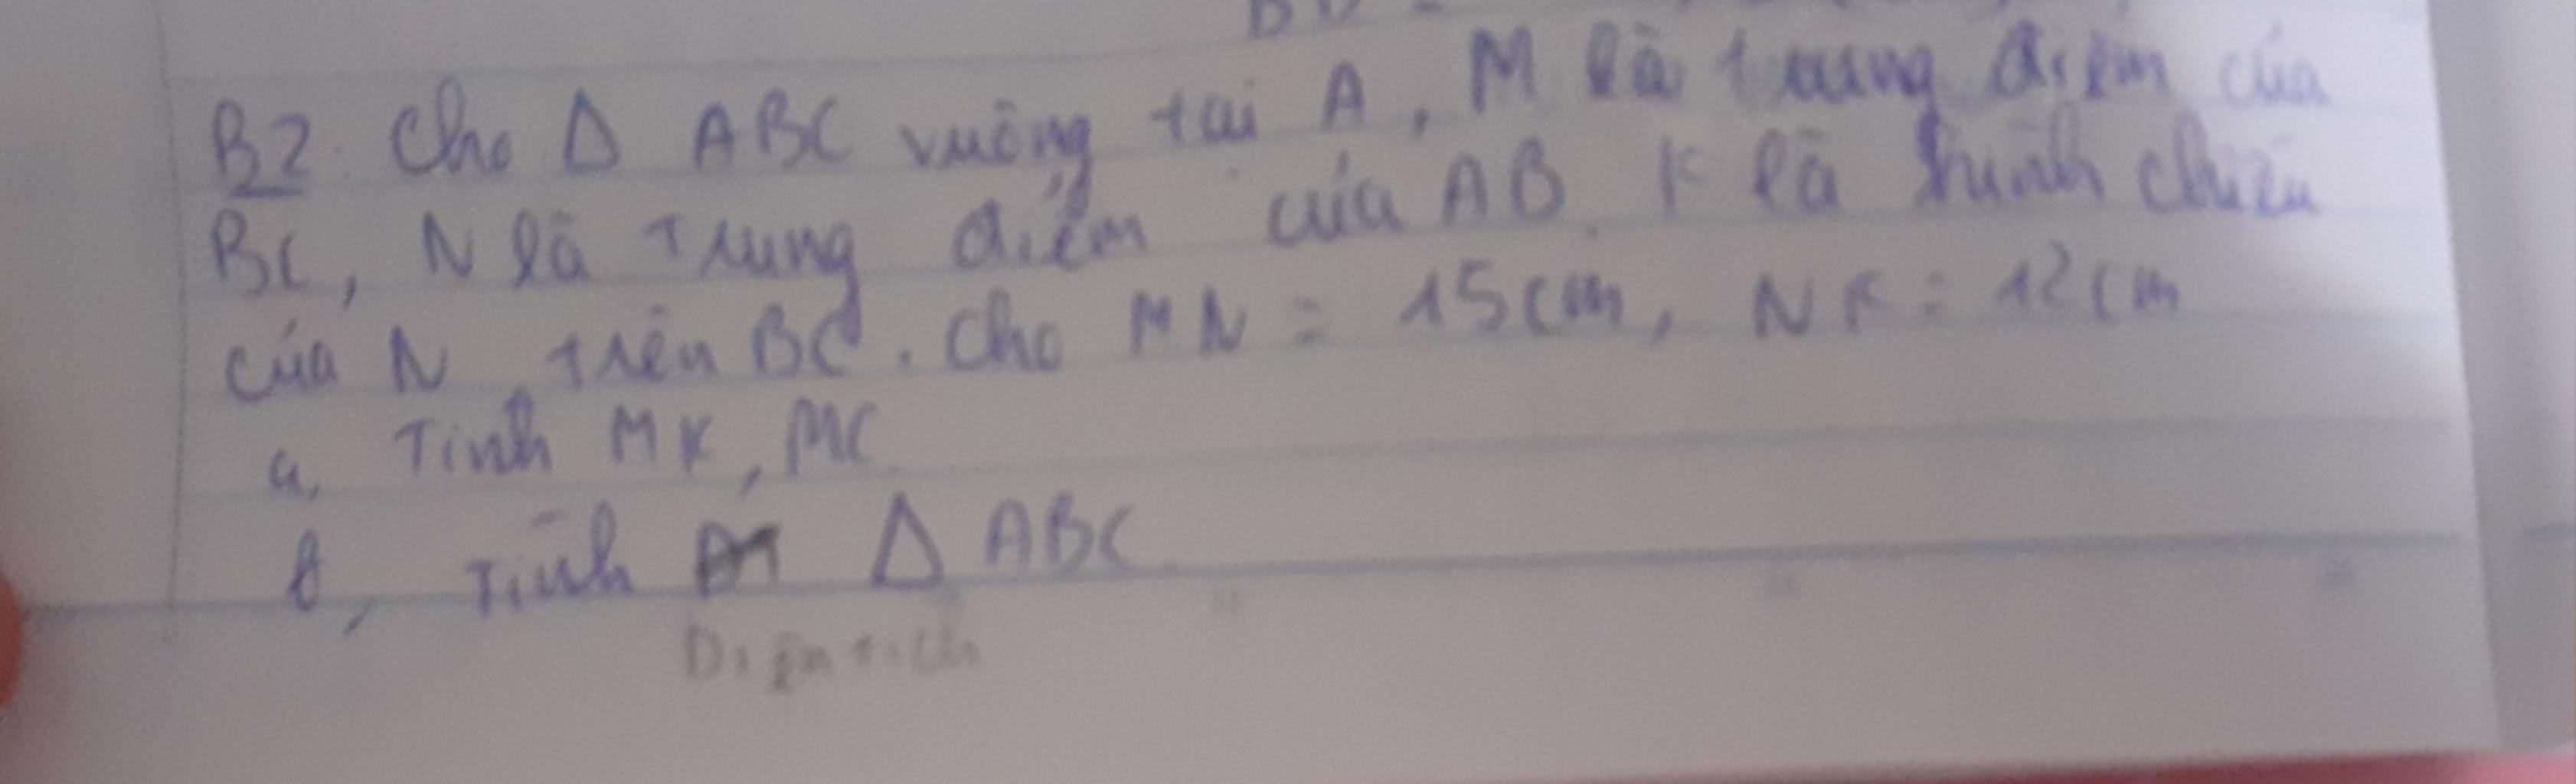 B2. Cho Δ ABC vuông tại A, M là trung điểm của
BC, N là trung điểm của AB. K là hình chiếu
của N trên BC. Cho MN = 15cm, NK = 12cm
a, Tính MK, MC
b, Tính Δ ABC
Diện tích